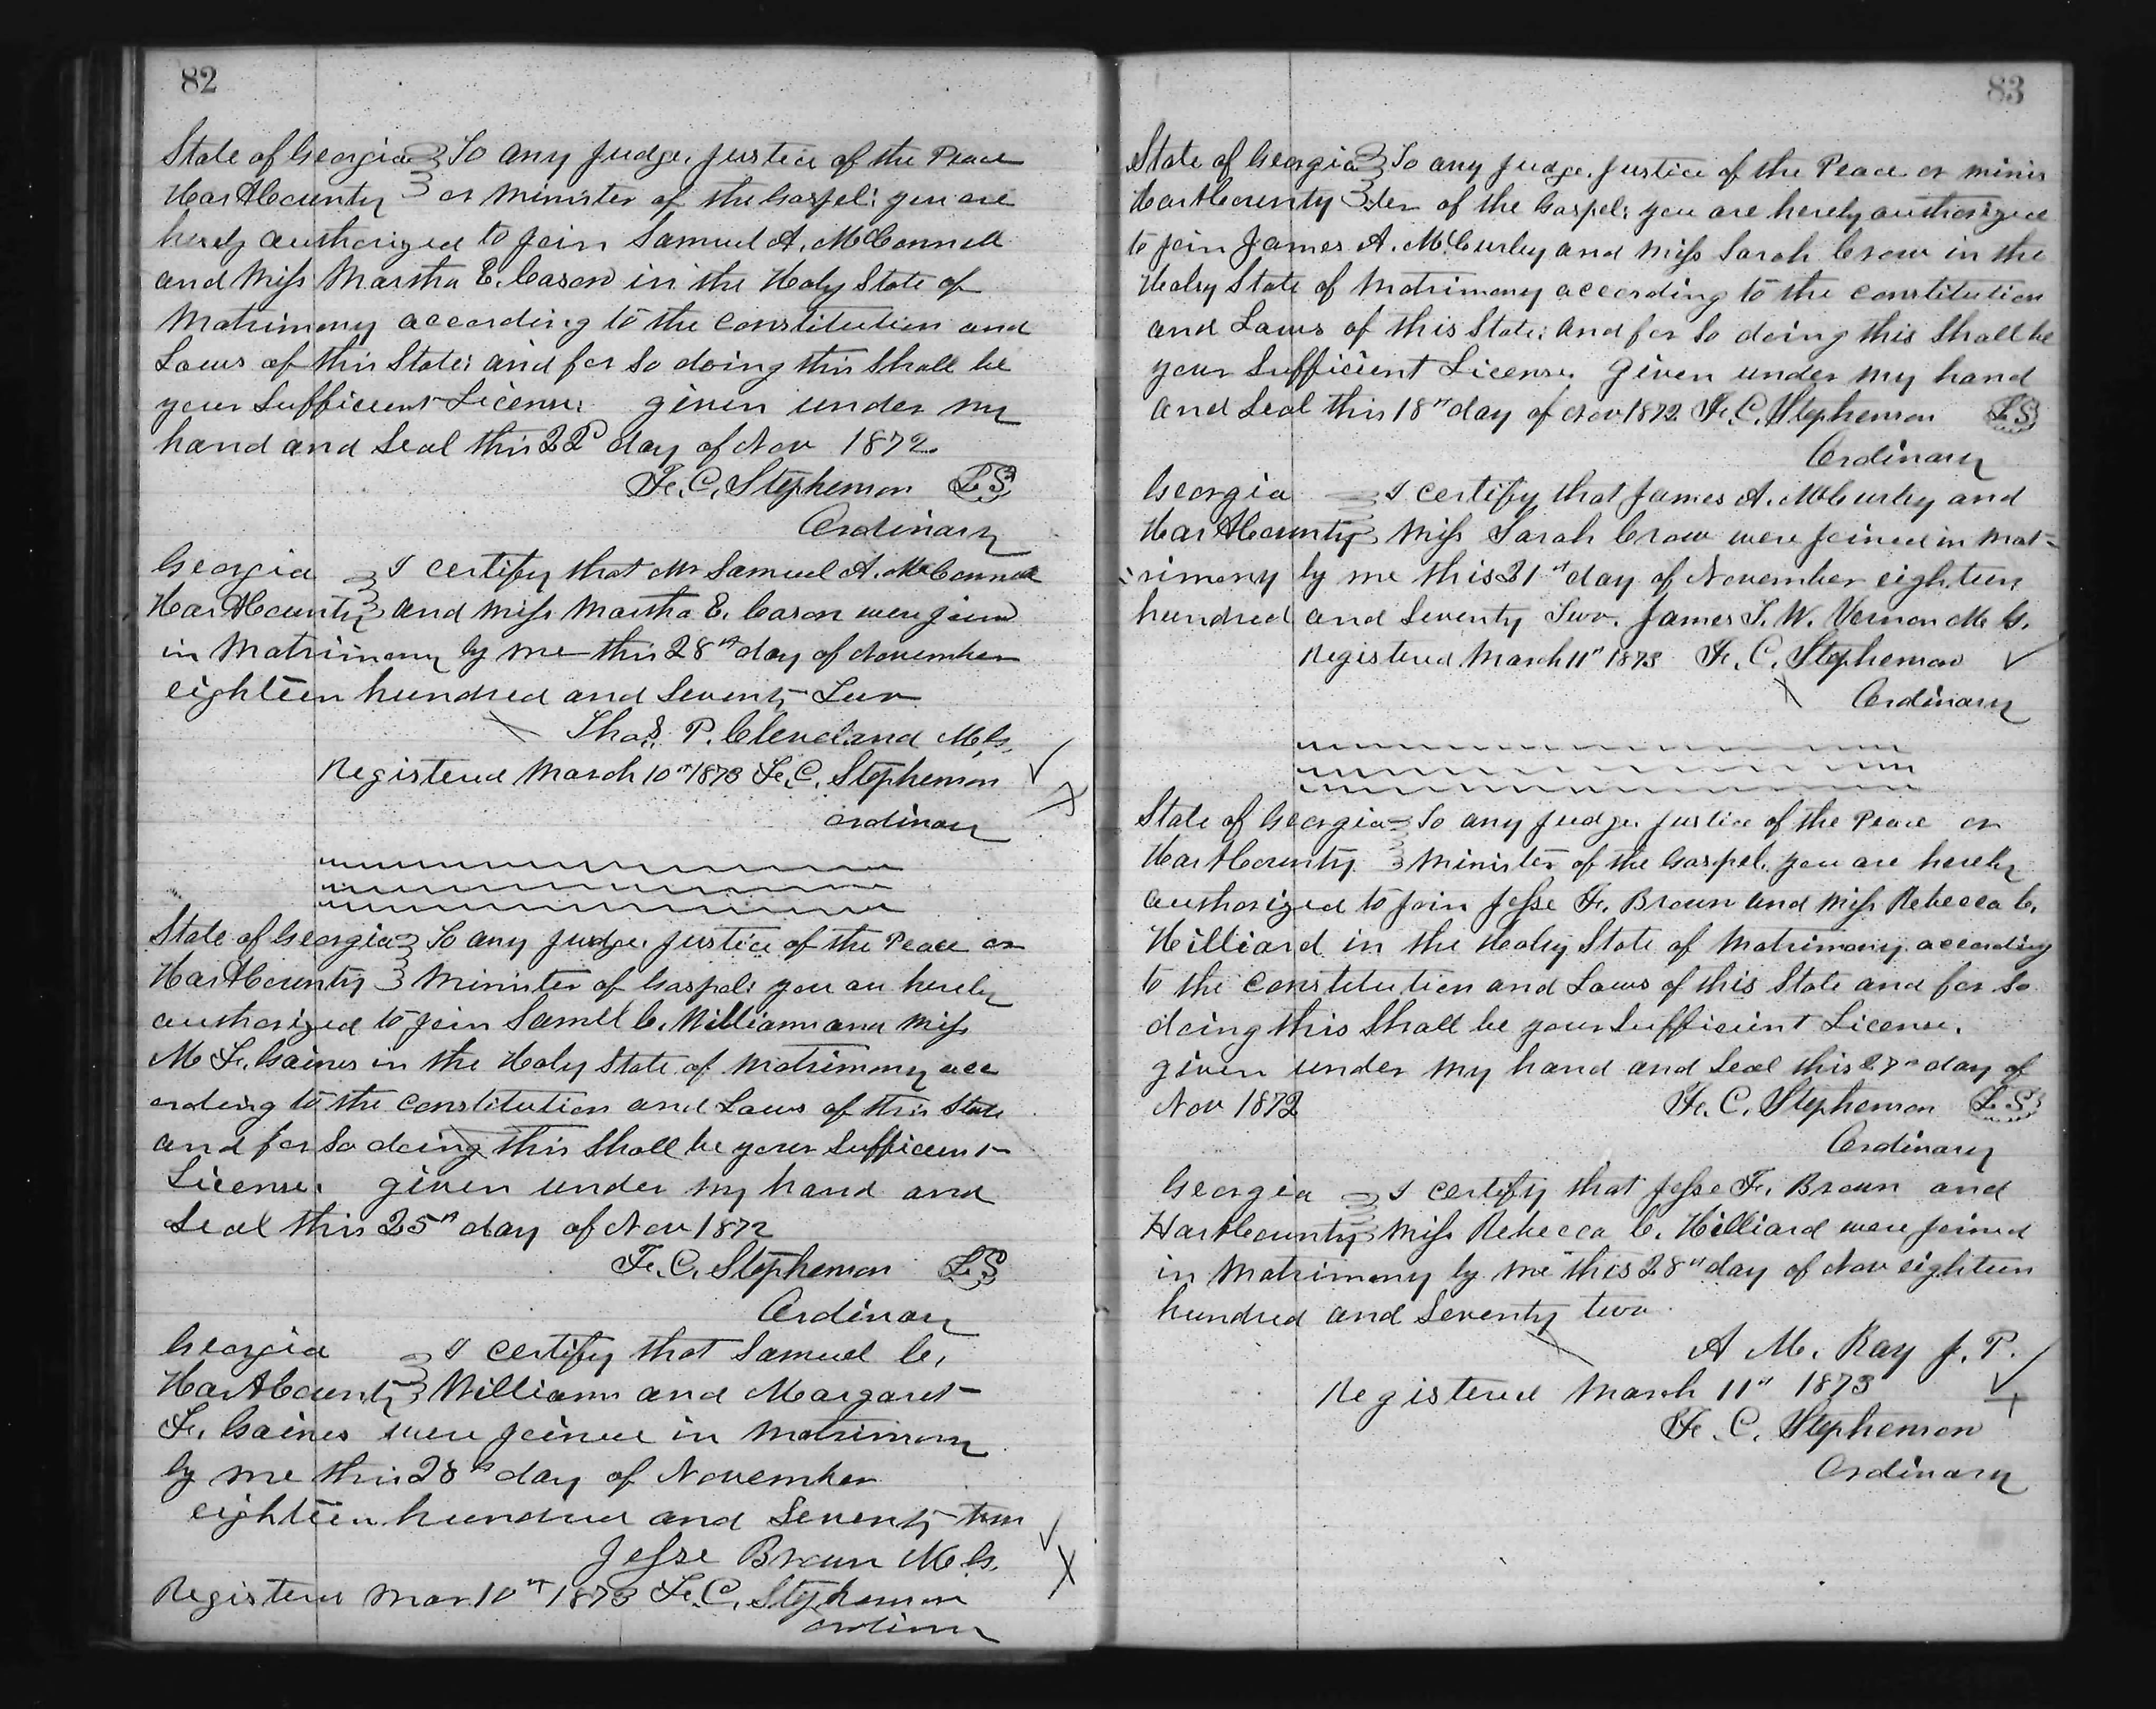 82
State of Georgia To any Judge, Justice of the Peace
Hart County or Minister of the Gospel: you are
hereby authorized to join Samuel A. McConnell
and Miss Martha E. Cason in the Holy State of
Matrimony according to the Constitution and
Laws of this State: and for so doing this shall be
your Sufficient License. given under my
hand and Seal this 22d day of Nov 1872.
F. C. Stephenson L.S.
Ordinary
Georgia I certify that Mr Samuel A. McConnell
Hart County and Miss Martha E. Cason were joined
in Matrimony by me this 28th day of November
eighteen hundred and Seventy Two
Thos. P. Cleveland M.G.
Registered March 10th 1873 F. C. Stephenson
ordinary
State of Georgia To any Judge, Justice of the Peace or
Hart County Minister of Gospel: you are hereby
authorized to join Samll C. Williams and Miss
M F. Gaines in the Holy State of Matrimony acc
ording to the Constitution and Laws of this State
and for so doing this shall be your Sufficient
License. given under my hand and
Seal this 25th day of Nov 1872
F. C. Stephenson L.S.
Ordinary
Georgia I certify that Samuel C.
Hart County Williams and Margaret
F. Gaines were joined in Matrimony
by me this 28th day of November
eighteen hundred and Seventy two
Jesse Brown M.G.
Registered Mar. 10th 1873 F. C. Stephenson
ordinary
83
State of Georgia To any Judge, Justice of the Peace or minis
Hart County ter of the Gospel: you are hereby authorized
to join James A. McCurley and Miss Sarah Crow in the
Holy State of Matrimony according to the constitution
and Laws of this State: and for so doing this shall be
your Sufficient License. Given under my hand
and Seal this 18th day of Nov 1872 F. C. Stephenson L.S.
Ordinary
Georgia I certify that James A. McCurley and
Hart County Miss Sarah Crow were joined in Mat-
rimony by me this 21st day of November eighteen
hundred and Seventy Two. James T. W. Vernon M G.
Registered March 11th 1873 F. C. Stephenson
Ordinary
State of Georgia To any Judge, Justice of the Peace or
Hart County Minister of the Gospel, you are hereby
authorized to join Jesse F. Brown and Miss Rebecca C.
Hilliard in the Holy State of Matrimony according
to the Constitution and Laws of this State and for so
doing this shall be your Sufficient License.
given under my hand and Seal this 27th day of
Nov 1872 F. C. Stephenson L.S.
Ordinary
Georgia I certify that Jesse F. Brown and
Hart County Miss Rebecca C. Hilliard were joined
in Matrimony by me this 28th day of Nov eighteen
hundred and Seventy two
A M. Ray J. P.
Registered March 11th 1873
F. C. Stephenson
Ordinary